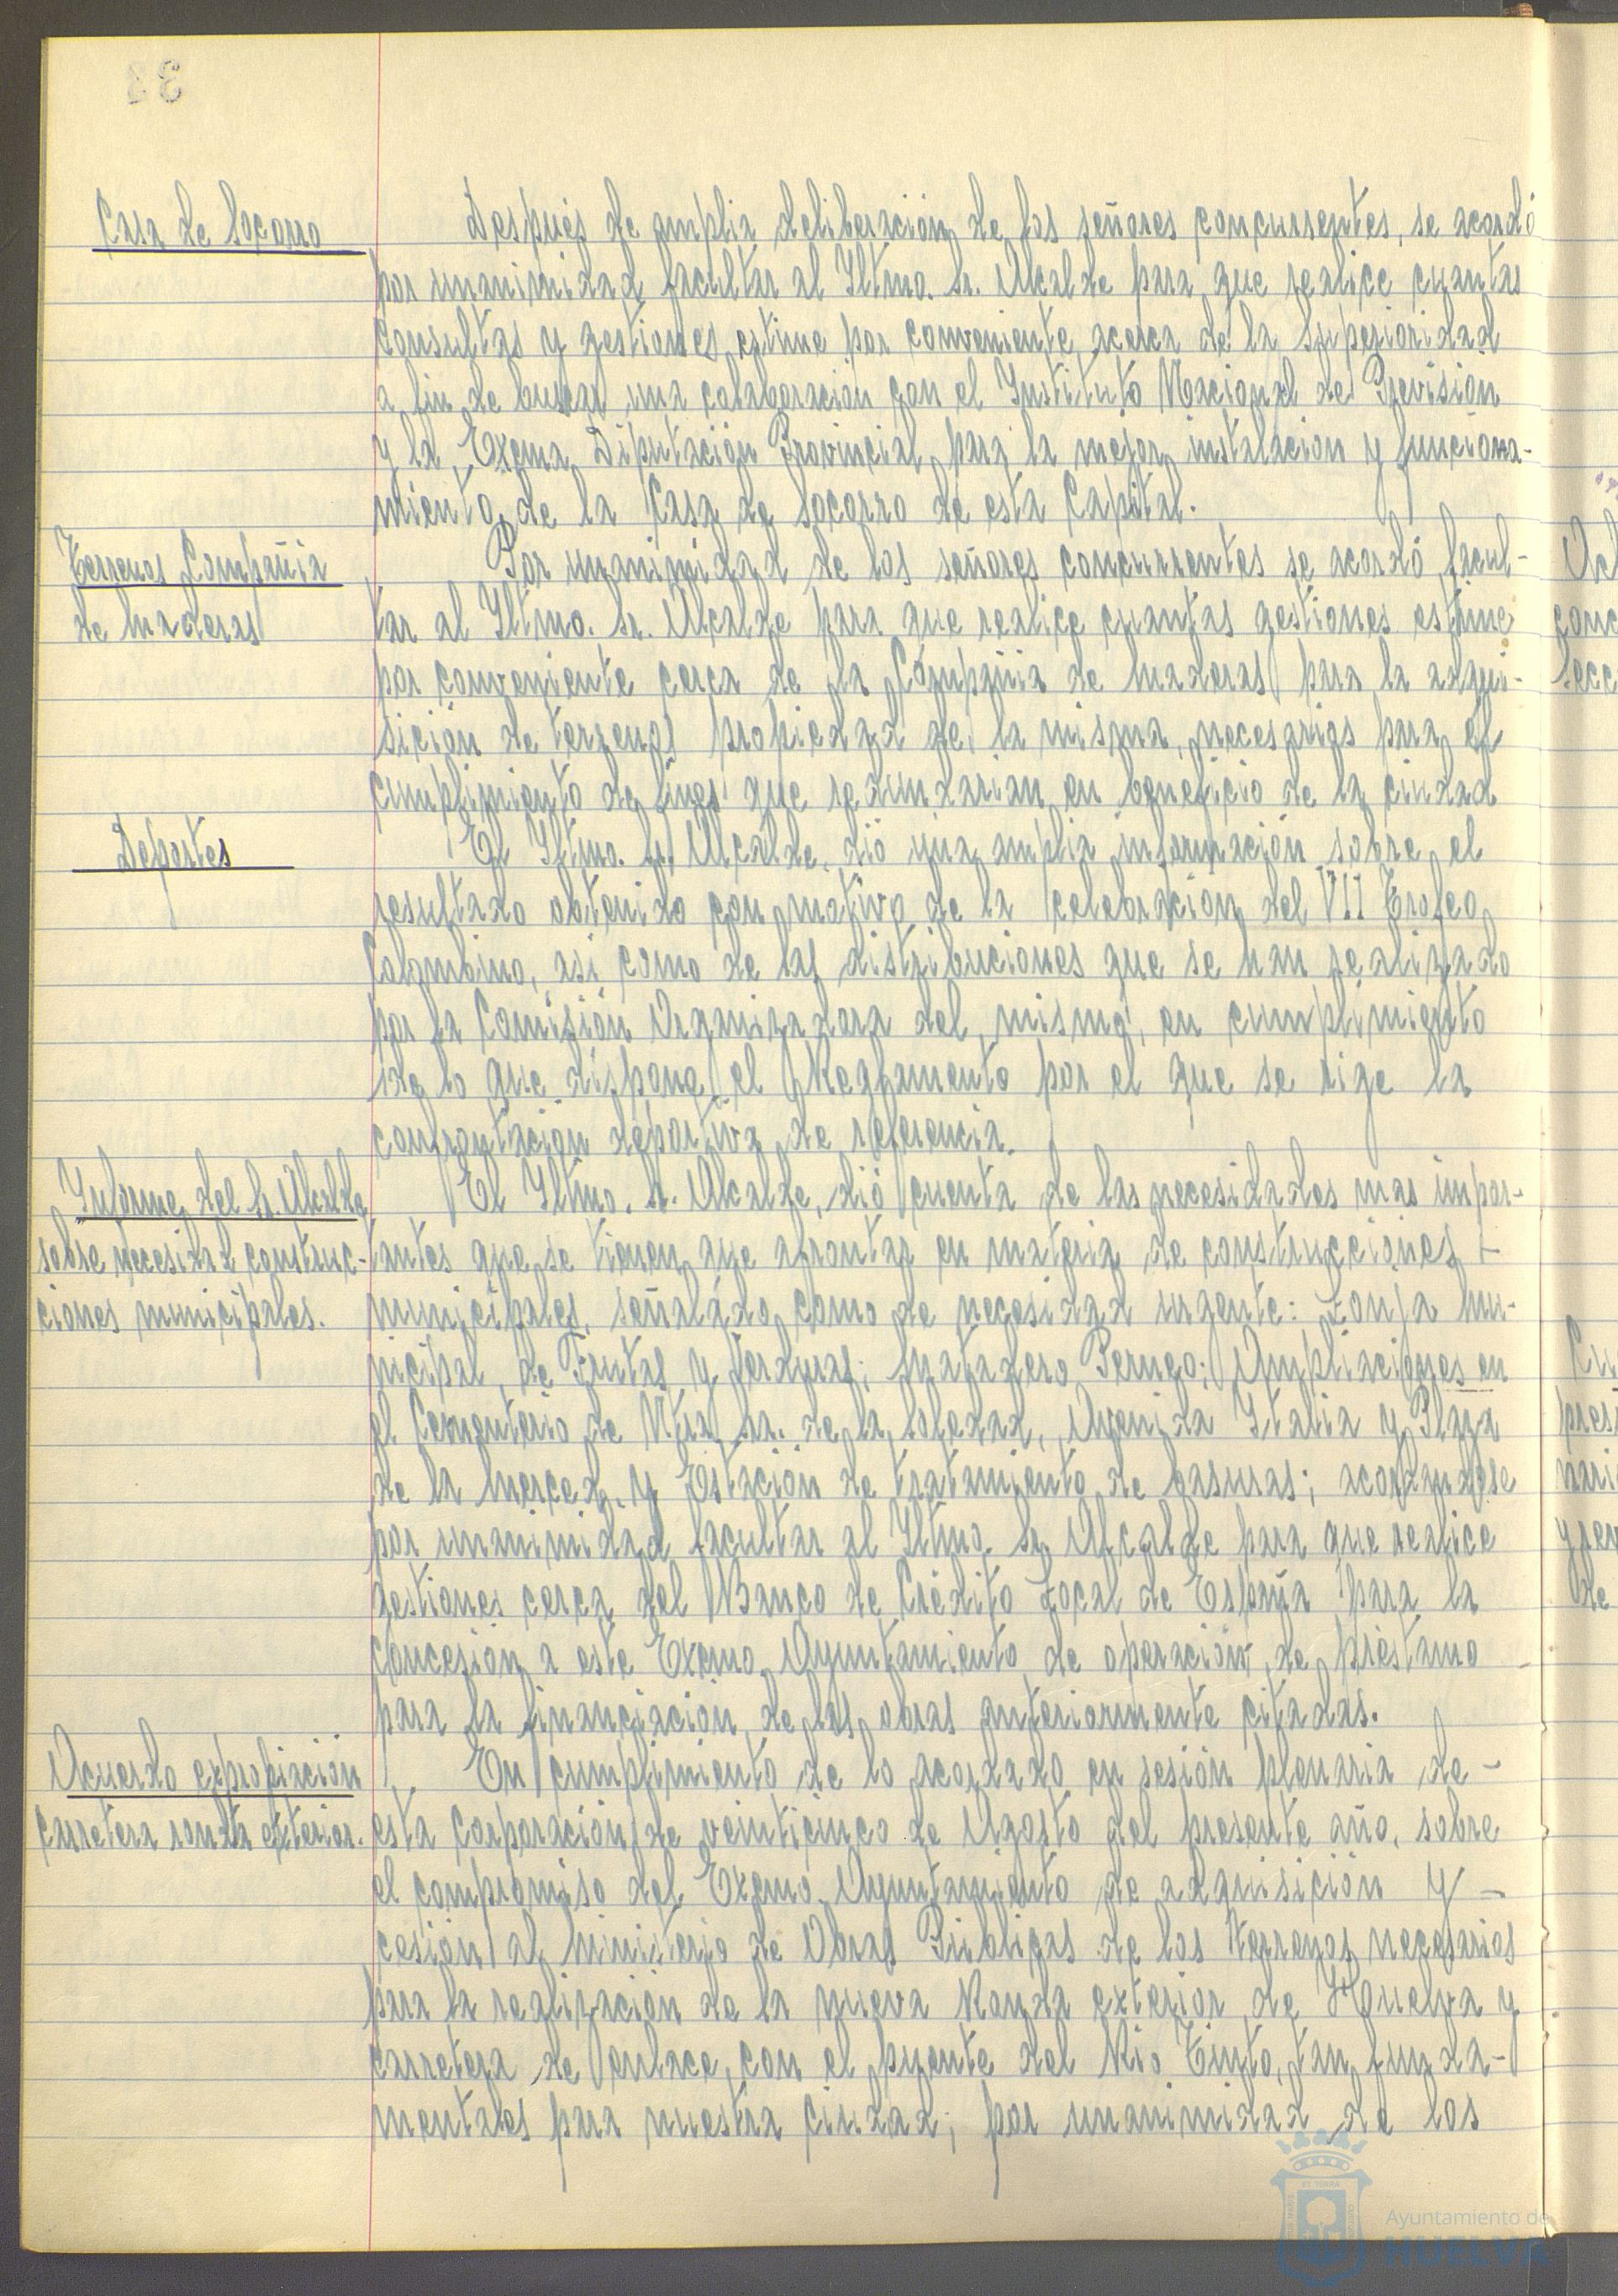 33
Casa de Socorro
Despues de amplia deliberación de los señores concurrentes, se acordó
por unanimidad facultar al Iltmo. Sr. Alcalde para que realice cuantas
consultas y gestiones estime por conveniente acerca de la Superioridad
a fin de buscar una colaboración con el Instituto Nacional de Previsión
y la Excma Diputación Provincial para la mejor instalacion y funciona-
miento de la Casa de Socorro de esta Capital.
Terrenos Compañia
de Maderas
Por unanimidad de los señores concurrentes se acordó facul-
tar al Iltmo. Sr. Alcalde para que realice cuantas gestiones estime
por conveniente cerca de la Compañia de Maderas para la adqui-
sición de terrenos propiedad de la misma, necesarios para el
cumplimiento de fines que redundarian en beneficio de la ciudad
Deportes
El Iltmo. Sr. Alcalde, dió una amplia información sobre el
resultado obtenido con motivo de la celebración del VII Trofeo
Colombino, asi como de las distribuciones que se han realizado
por la Comisión Organizadora del mismo, en cumplimiento
de lo que dispone el Reglamento por el que se rige la
confrontacion deportiva de referencia.
Informe del Sr. Alcalde
sobre necesidad construc-
ciones municipales.
El Iltmo. Sr. Alcalde, dió cuenta de las necesidades mas impor-
tantes que se tienen que afrontar en materia de construcciones -
municipales, señalado como de necesidad urgente: Lonja Mu-
nicipal de Frutas y Verduras; Matadero Porcuno; Ampliaciones en
el Cementerio de Ntra Sra. de la Soledad, Avenida Italia y Plaza
de la Merced y Estación de tratamiento de basuras; acordandose
por unanimidad facultar al Iltmo. Sr. Alcalde para que realice
gestiones cerca del Banco de Crédito Local de España para la
concesión a este Excmo. Ayuntamiento de operación de prestamo
para la financiación de las obras anteriormente citadas.
Acuerdo expropiacion
carretera ronda exterior.
En cumplimiento de lo acordado en sesión plenaria de -
esta Corporación de veinticinco de Agosto del presente año, sobre
el compromiso del Excmo. Ayuntamiento de adquisición y -
cesión al Ministerio de Obras Publicas de los terrenos necesarios
para la realización de la nueva Ronda exterior de Huelva y
carretera de enlace con el puente del Rio Tinto, tan funda-
mentales para nuestra ciudad; por unanimidad de los
Ayuntamiento de
HUELVA